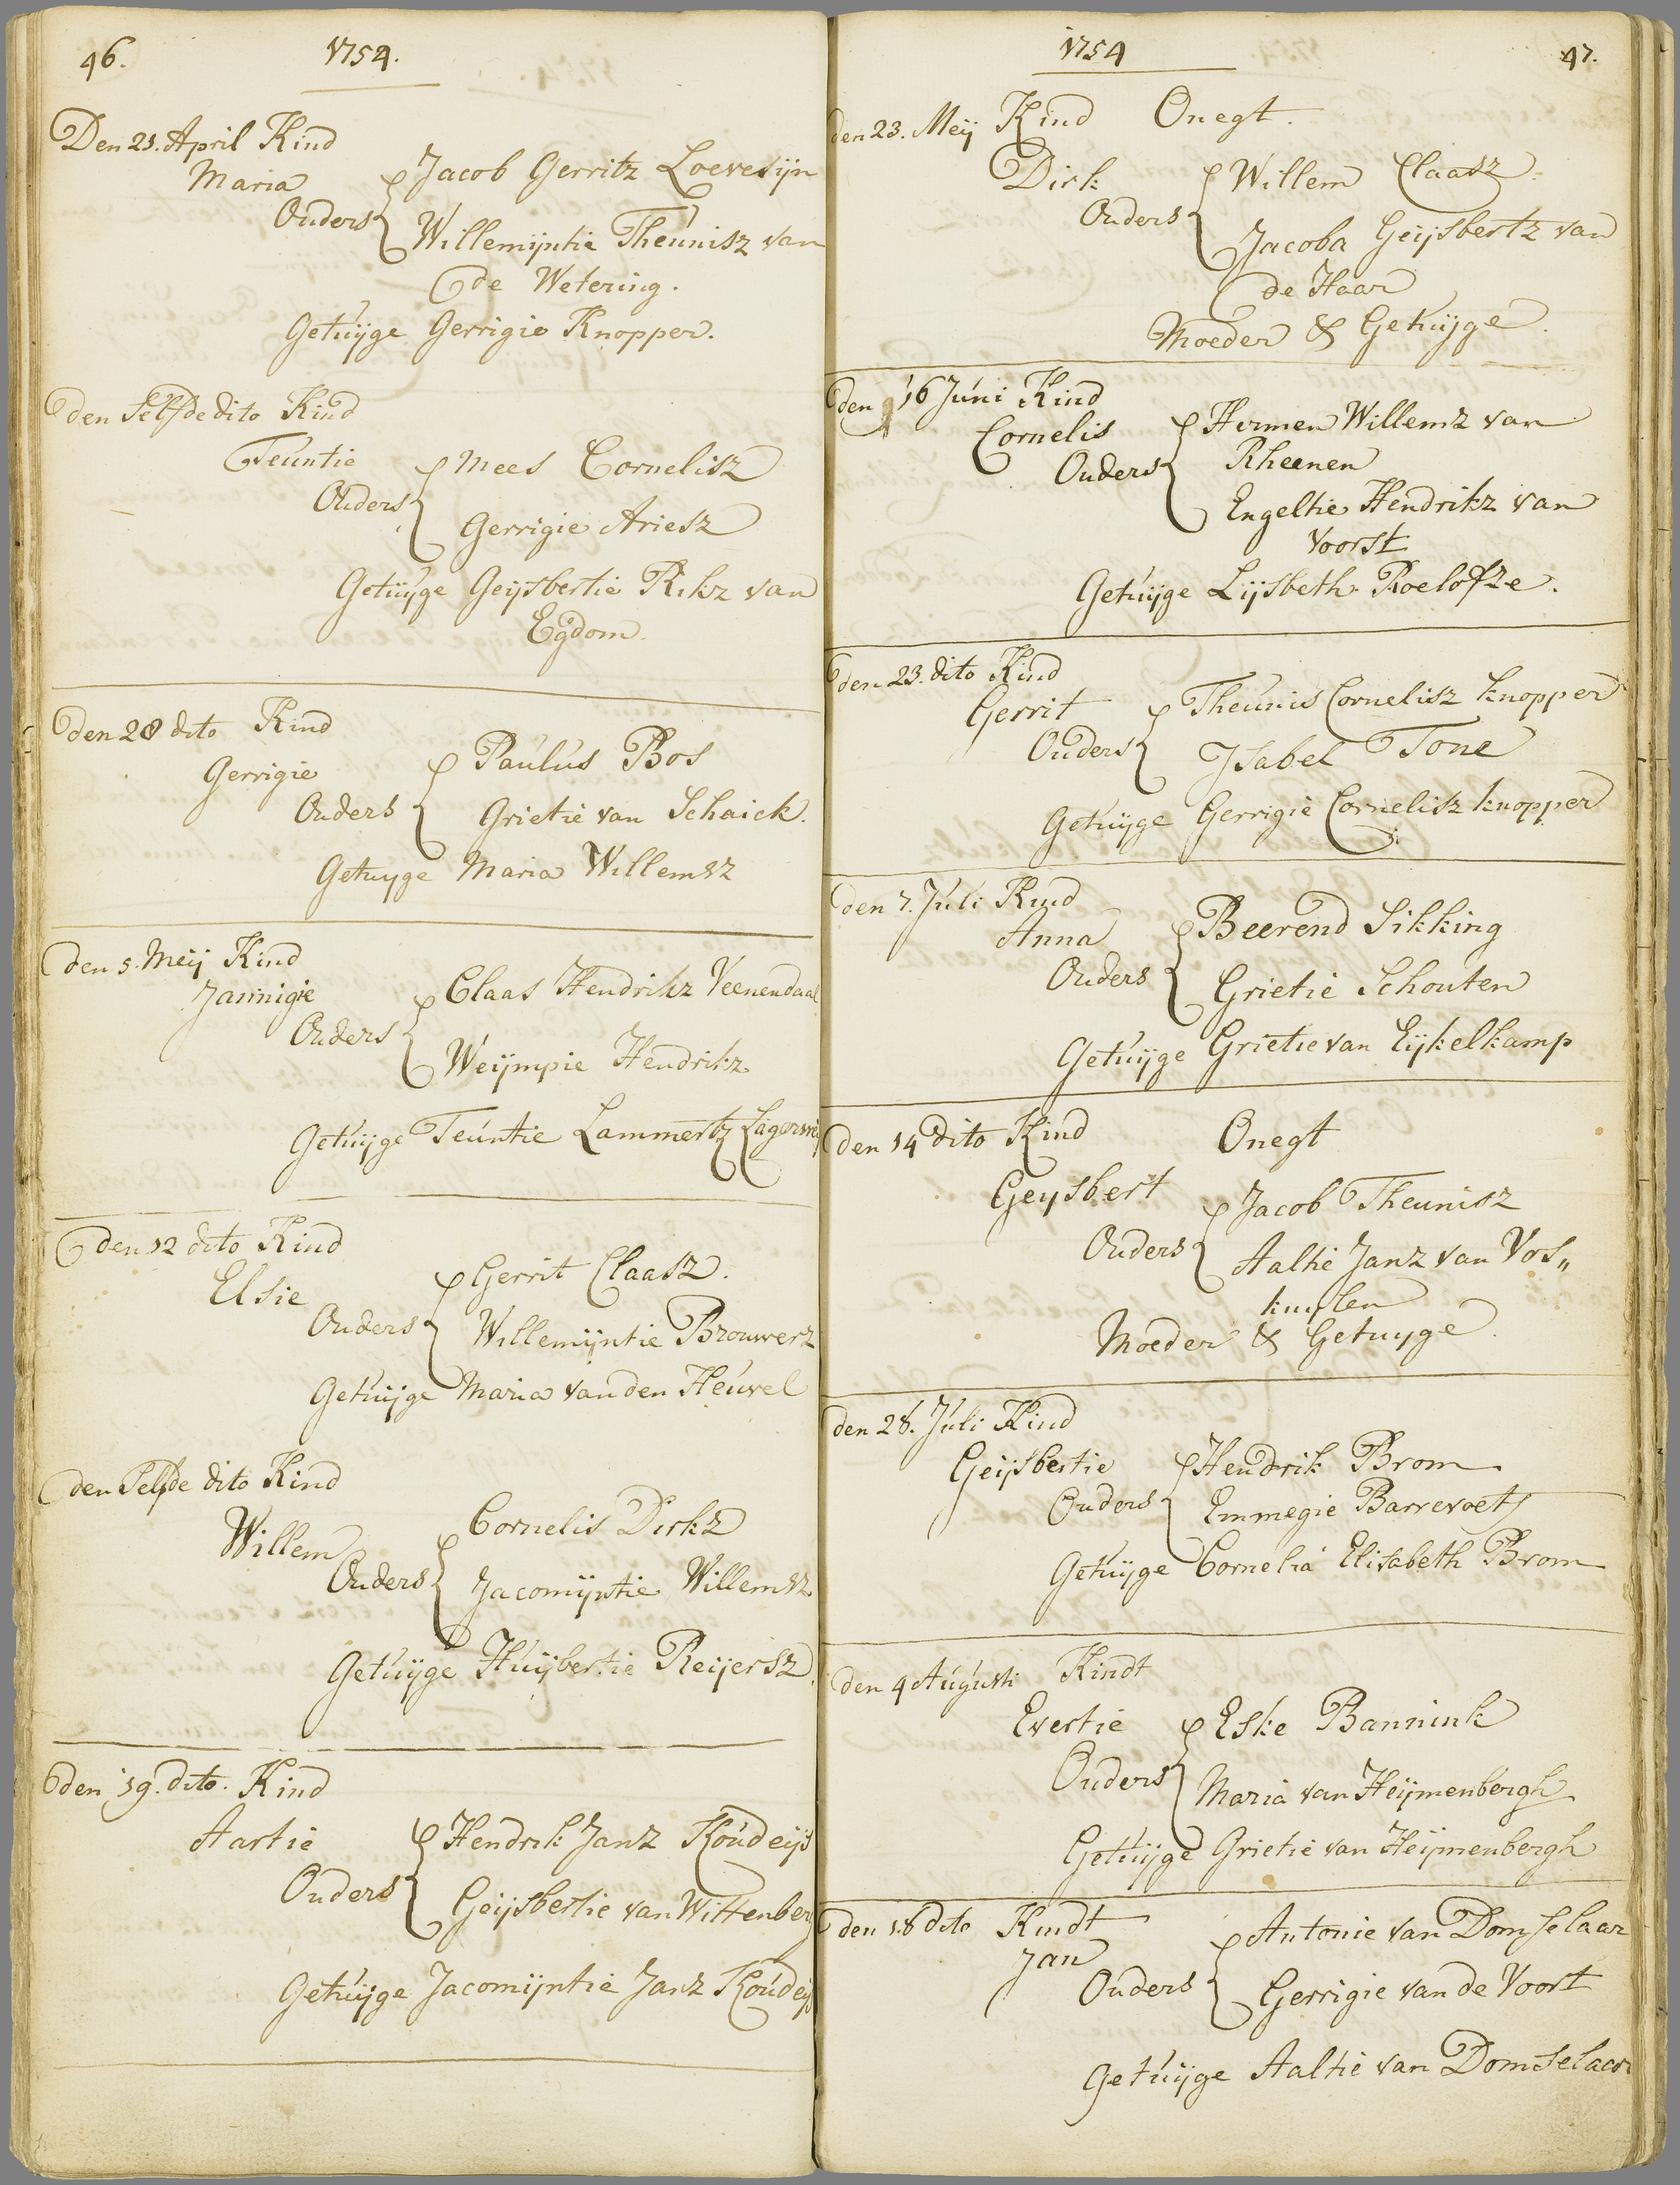 46. 1754.
Den 21. April Kind
Maria
Ouders
Jacob Gerritz Loevesijn
Willemijntie Theunisz van
de Wetering.
Getuijge Gerrigie Knopper.
den Selfde dito Kind
Teuntie
Ouders
Mees Cornelisz
Gerrigie Ariesz
Getuijge Geijsbertie Rikz van
Egdom.
den 28 dito Kind
Gerrigie
Ouders
Paulus Bos
Grietie van Schaick.
Getuyge Maria Willemsz
den 5. Meij Kind
Jannigie
Ouders
Claas Hendrikz Veenendaal
Weijmpie Hendrikz
Getuijge Teuntie Lammertz
den 12 dito Kind
Elsie
Ouders
Gerrit Claasz.
Willemijntie Brouwerz
Getuijge Maria van den Heuvel
den Selfde dito Kind
Willem
Ouders
Cornelis Dirkz
Jacomijntie Willemsz
Getuijge Huijbertie Reijersz
den 19. dito. Kind
Aartie
Ouders
Hendrik Janz Koudeijs
Geijsbertie van Wittenberg
Getuijge Jacomijntie Janz Koudeijs
1754 47.
den 23. Meij Kind Onegt.
Dirk
Ouders
Willem Claasz
Jacoba Geijsbertz van
de Haar
Moeder & Getuijge.
den 16 Juni Kind
Cornelis
Ouders
Hermen Willemz van
Rheenen
Engeltie Hendrikz van
Voorst
Getuijge Lijsbeth Roelofze.
den 23. dito Kind
Gerrit
Ouders
Theunis Cornelisz Knopper
Isabel Tone
Getuijge Gerrigie Cornelisz Knopper
den 7. Juli Kind
Anna
Ouders
Beerend Sikking
Grietie Schouten
Getuijge Grietie van Eijkelkamp
den 14 dito Kind Onegt
Geysbert
Ouders
Jacob Theunisz
Aaltie Janz van Vos„
kuylen
Moeder & Getuyge
den 28. Juli Kind
Geijsbertie
Ouders
Hendrik Brom
Emmegie Barrevoets
Getuijge Cornelia Elisabeth Brom
den 4 Augusti Kindt
Evertie
Ouders
Eske Bannink
Maria van Heijmenbergh
Getuijge Grietie van Heijmenbergh
den 18 dito Kindt
Jan
Ouders
Antonie van Domselaar
Gerrigie van de Voort
Getuijge Aaltie van Domselaar